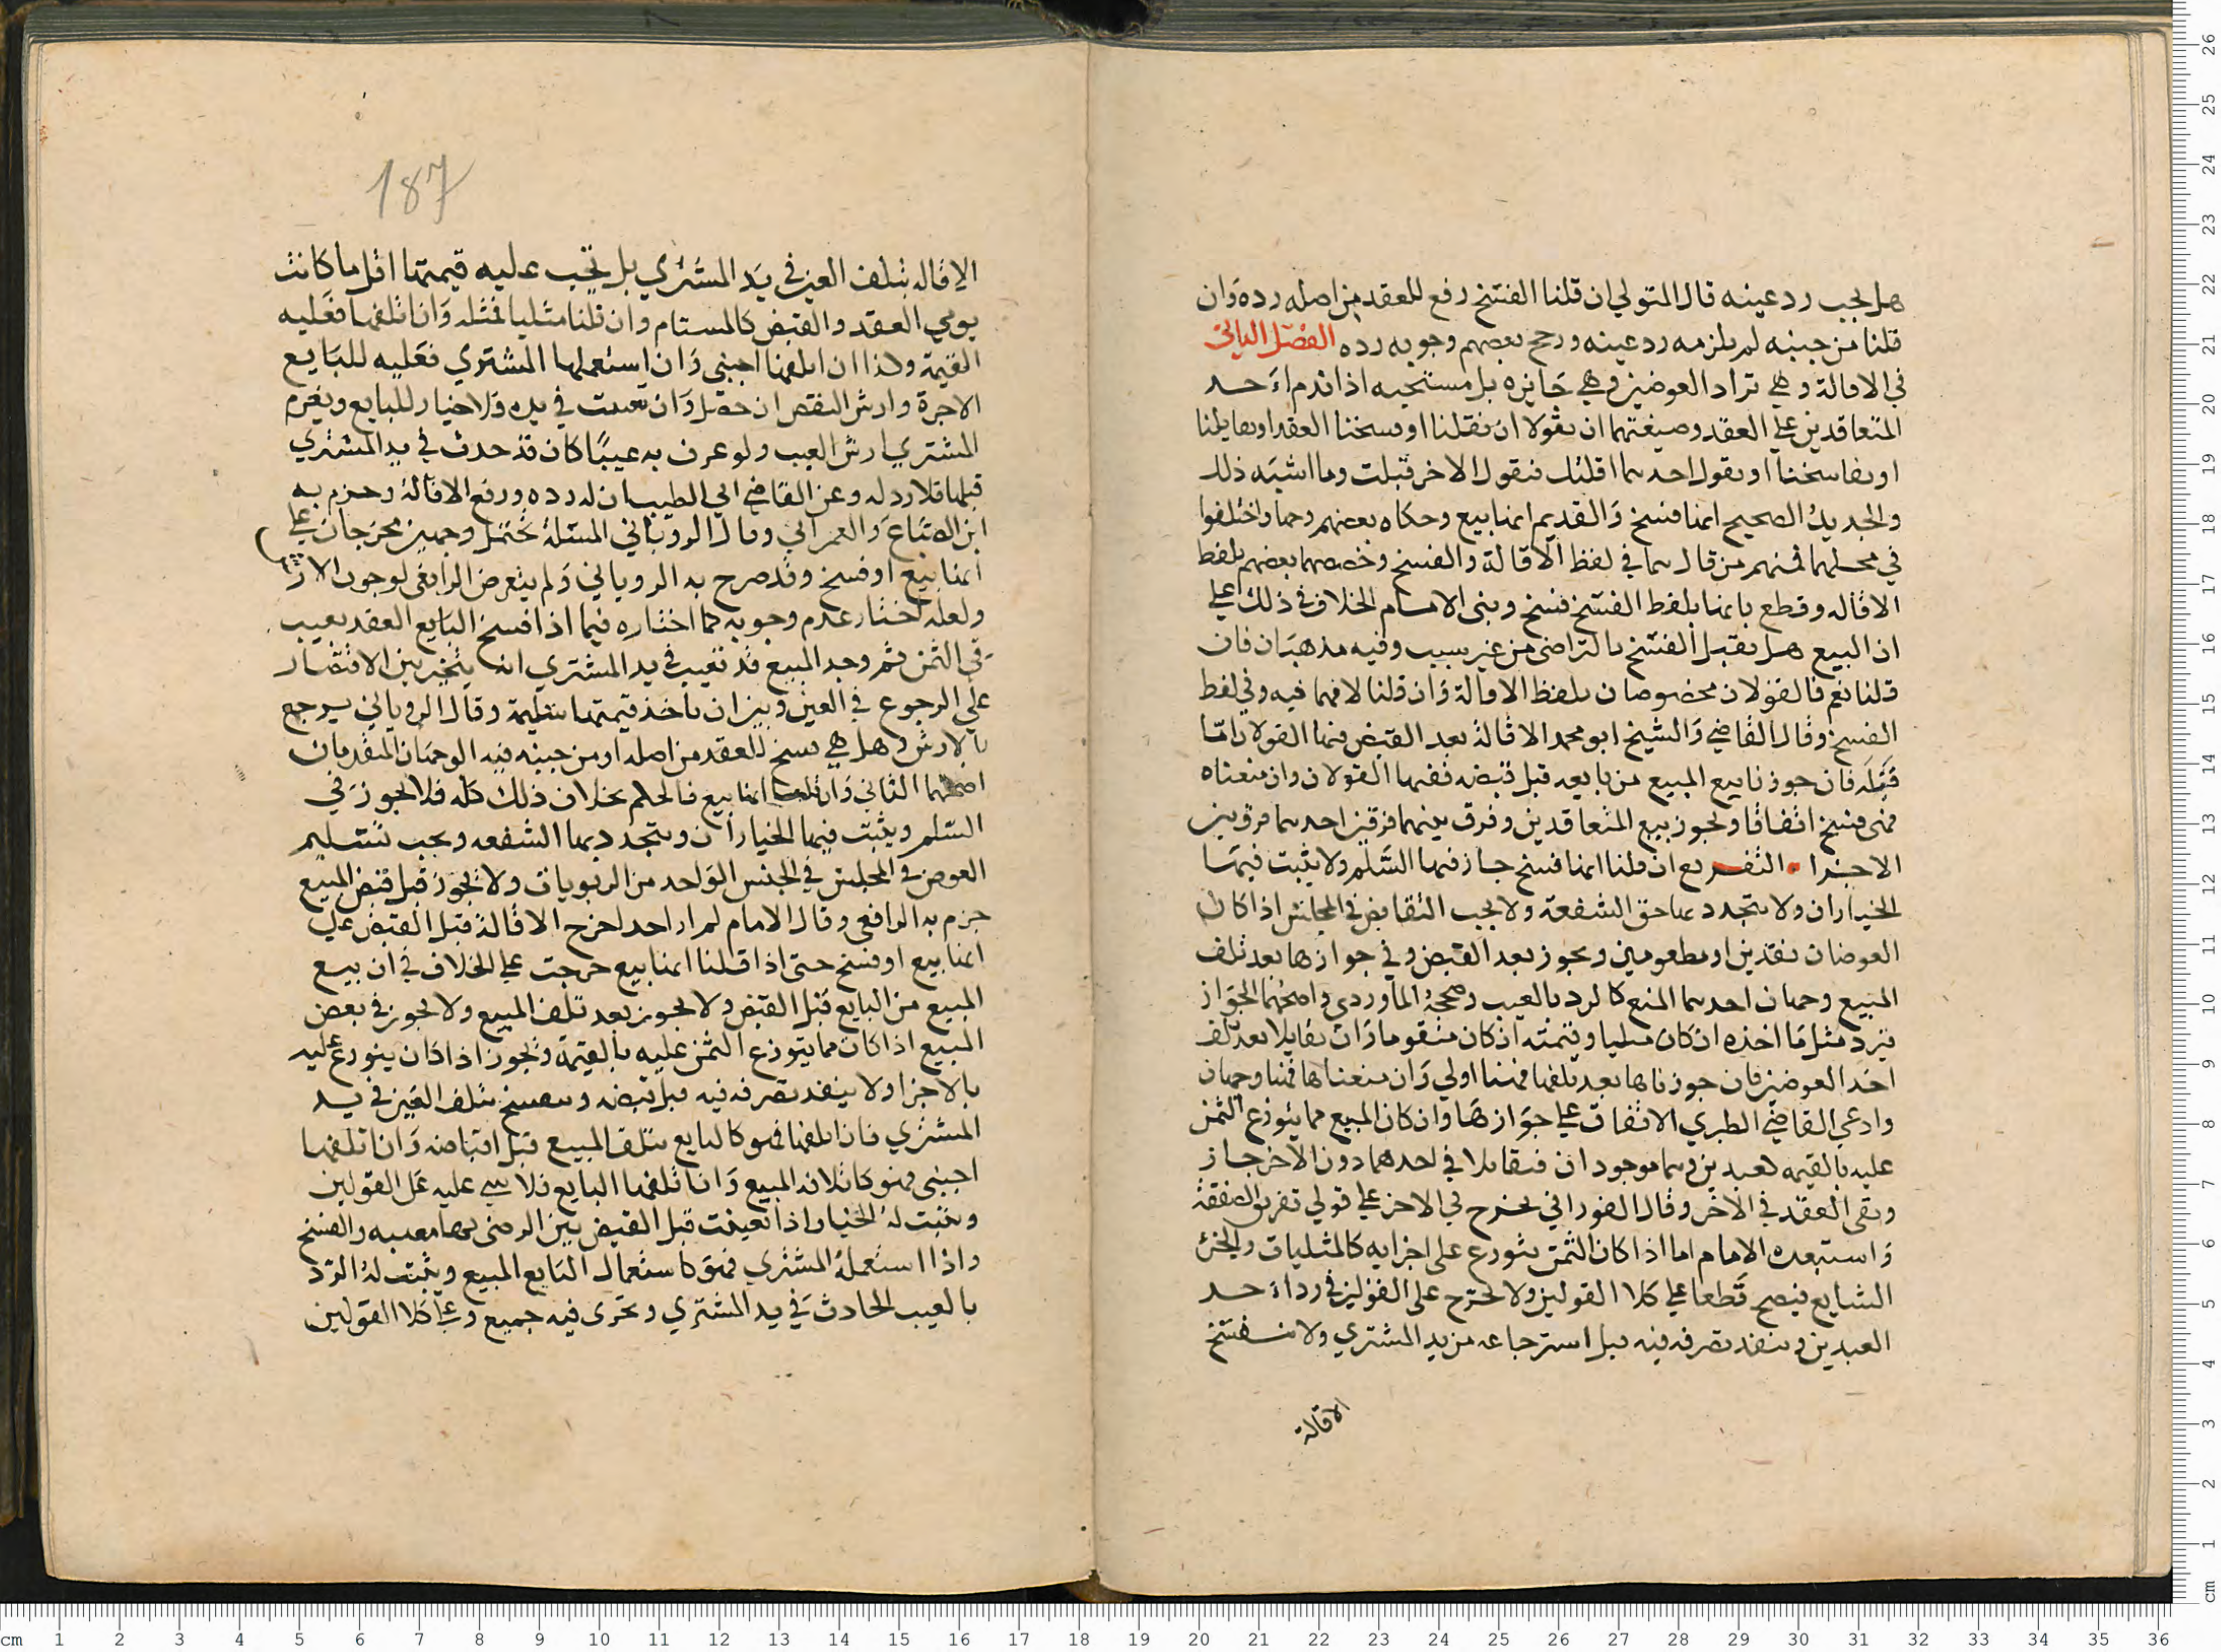 هل يجب رد عينه قال المتولي ان قلنا الفسخ رفع للعقد من اصله رده وان
قلنا من حينه لم يلزمه رد عينه ورجح بعضهم وجوبه رده الفصل الثاني
في الاقالة وهي تراد العوضين وهي جايزه بل مستحبه اذا ندم احد
المتعاقدين علي العقد وصيغتهما ان يقولا ان تقيلنا او فسخنا العقد او تقايلنا
او تفاسخنا او يقول احدهما اقلتك فيقول الاخر قبلت وما اشبه ذلك
والجديد الصحيح انها فسخ والقديم انها بيع وحكاه بعضهم وجها واختلفوا
في محلهما فمنهم من قال هما في لفظ الاقالة والفسخ وخصهما بعضهم بلفظ
الاقاله وقطع بانها بلفظ الفسخ فسخ وبنى الامام الخلاف في ذلك علي
ان البيع هل يقبل الفسخ بالتراضى من غير سبب وفيه مذهبان فان
قلنا نعم فالقولان مخصوصان بلفظ الاقالة وان قلنا لا فهما فيه وفي لفظ
الفسخ وقال القاضي والشيخ ابو محمد الاقالة بعد القبض فيها القولان امّا
قبله فان جوزنا بيع المبيع من بايعه قبل قبضه ففيها القولان وان منعناه
فهى فسخ اتفاقا ويجوز بيع المتعاقدين وفرق بينهما فرقين احدهما فرق بين
الاجزا التفريع ان قلنا انها فسخ جاز فيها السلم ولا يثبت فيها
الخياران ولا يتجدد بها حق الشفعة ولا يجب التقابض في المجلس اذا كان
العوضان نقدين او مطعومين ويجوز بعد القبض وفي جوازها بعد تلف
المبيع وجهان احدهما المنع كالرد بالعيب وصححه الماوردي واصحهما الجواز
فيرد مثل ما اخذه ان كان مثليا وقيمته ان كان متقوما وان تقايلا بعد تلف
احد العوضين فان جوزناها بعد تلفها فهنا اولي وان منعناها فهنا وجهان
وادعي القاضي الطبري الاتفاق علي جوازها وان كان المبيع مما يتوزع الثمن
عليه بالقيمه كعبدين وهما موجودان فتقايلا في احدهما دون الآخر جاز
وبقى العقد في الآخر وقال الفوراني يخرج في الاخر علي قولي تفريق الصفقة
واستبعده الامام اما اذا كان الثمن يتوزع على اجزايه كالمثليات والجزء
الشايع فيصح قطعا علي كلا القولين ولا يخرج على القولين في رد احد
العبدين وينفذ تصرفه فيه قبل استرجاعه من يد المشتري ولا تنفسخ
الاقالة
187
الاقاله بتلف العين في يد المشتري بل يجب عليه قيمتها اقل ما كانت
يومي العقد والقبض كالمستام وان قلنا مثليا فمثله وان اتلفها فعليه
القيمة وكذا ان اتلفها اجنبي وان استعملها المشتري فعليه للبايع
الاجرة وارش النقص ان حصل وان تعيبت في يده فلا خيار للبايع ويغرم
المشتري ارش العيب ولو عرف به عيبًا كان قد حدث في يد المشتري
قبلها فلا رد له وعن القاضي ابي الطيب ان له رده ورفع الاقالة وجزم به
ابن الصباغ والعمراني وقال الروياني المسئلة تحتمل وجهين مخرجان علي
انها بيع او فسخ وقد صرح به الروياني ولم يتعرض الرافعي لوجوب الارش
ولعله اختار عدم وجوبه كما اختاره فيما اذا فسخ البايع العقد بعيب
في الثمن ثم وجد المبيع قد تعيب في يد المشتري انه يتخير بين الاقتصار
علي الرجوع في العين وبين ان ياخذ قيمتها سليمة وقال الروياني يرجع
بالارش وهل هي فسخ للعقد من اصله او من حينه فيه الوجهان المتقدمان
اصحهما الثاني وان قلنا انها بيع فالحكم بخلاف ذلك كله فلا يجوز في
السلم ويثبت فيها الخياران ويتجدد بها الشفعه ويجب تسليم
العوض في المجلس في الجنس الواحد من الربويات ولا يجوز قبل قبض المبيع
جزم به الرافعي وقال الامام لم ار احد اخرج الاقالة قبل القبض علي
انها بيع او فسخ حتى اذا قلنا انها بيع خرجت علي الخلاف في ان بيع
المبيع من البايع قبل القبض ولا يجوز بعد تلف المبيع ولا يجوز في بعض
المبيع اذا كان مما يتوزع الثمن عليه بالقيمة ويجوز اذا كان يتوزع عليه
بالاجزا ولا ينفذ تصرفه فيه قبل قبضه وينفسخ بتلف العين في يد
المشتري فان اتلفها فهو كالبايع يتلف المبيع قبل اقباضه وان اتلفها
اجنبي فهو كاتلافه المبيع وان اتلفها البايع فلا شي عليه على القولين
ويثبت له الخيار واذا تعيبت قبل القبض بين الرضى بها معيبه والفسخ
واذا استعمله المشتري فهو كاستعمال البايع المبيع ويثبت له الرد
بالعيب الحادث في يد المشتري ويجرى فيه جميع وعلي كلا القولين